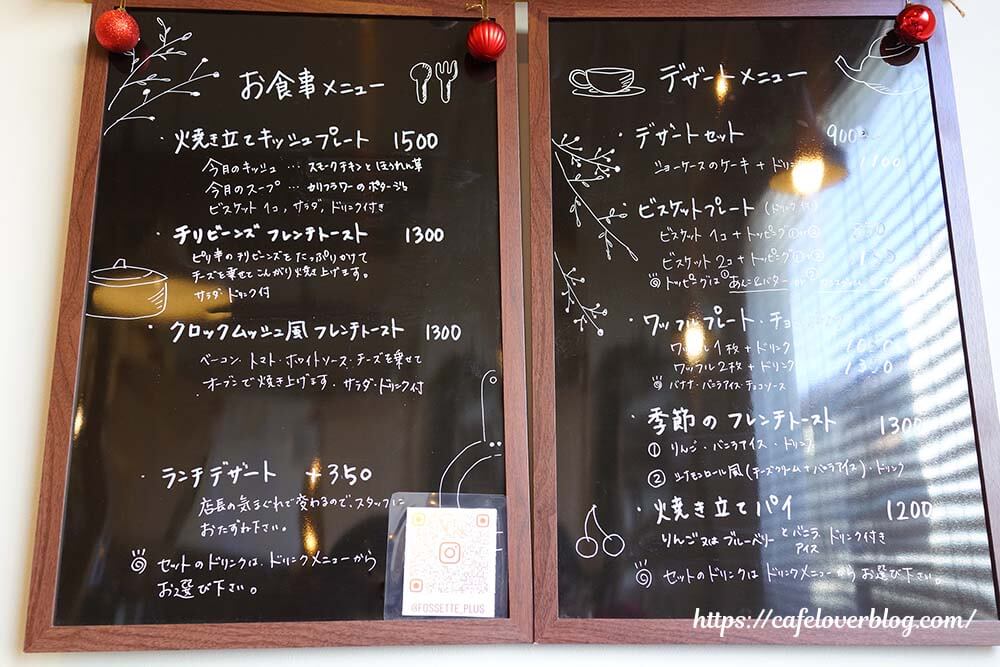 お食事メニュー
・焼き立てキッシュプレート 1500
今月のキッシュ … スモークチキンとほうれん草
今月のスープ … カリフラワーのポタージュ
ビスケット1コ, サラダ, ドリンク付き
・チリビーンズ フレンチトースト 1300
ピリ辛のチリビーンズをたっぷりかけて
チーズを乗せてこんがり焼き上げます。
サラダ・ドリンク付
・クロックムッシュ風 フレンチトースト 1300
ベーコン・トマト・ホワイトソース・チーズを乗せて
オーブンで焼き上げます・サラダ・ドリンク付
・ランチデザート +350
店長の気まぐれで変わるので、スタッフに
おたずね下さい。
セットのドリンクは、ドリンクメニューから
お選び下さい。
@FOSSETTE_PLUS
デザートメニュー
・デザートセット 900
ショーケースのケーキ + ドリンク
・ビスケットプレート (ドリンク付)
ビスケット 1コ + トッピング①or②
ビスケット 2コ + トッピング①or②
トッピングは ①あんこ&バター or ②
・ワッフルプレート・チョ
ワッフル1枚 + ドリンク
ワッフル2枚 + ドリンク
バナナ・バニラアイス・チョコソース
・季節の フレンチトースト 1300
① りんご・バニラアイス・ドリンク
② シナモンロール風 (チーズクリーム + バニラアイス)・ドリンク
・焼き立てパイ 1200
りんご又は ブルーベリー とバニラアイス ドリンク付き
セットのドリンクは ドリンクメニューから お選び下さい。
https://cafeloverblog.com/